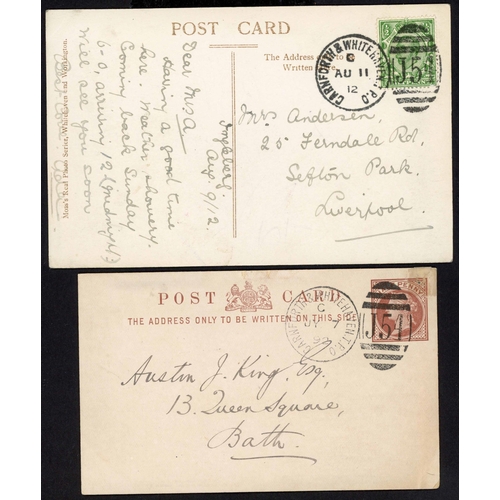 POST CARD
The Address
Written
CARNFORTH & WHITEH
C
AU 11
12
J54
Mrs Andersen,
25 Ferndale Rd,
Sefton Park,
Liverpool.
Aug 9/12.
Dear Mrs A
Having a good time
here. Weather showery.
Coming back Sunday
Will see you soon
Moss's Real Photo Series, Whitehaven and Workington.
POST CARD
THE ADDRESS ONLY TO BE WRITTEN ON THIS SIDE
CARNFORTH & WHITEHAVEN T.P.O
C
J54
Austin J. King, Esq,
13, Queen Square,
Bath.